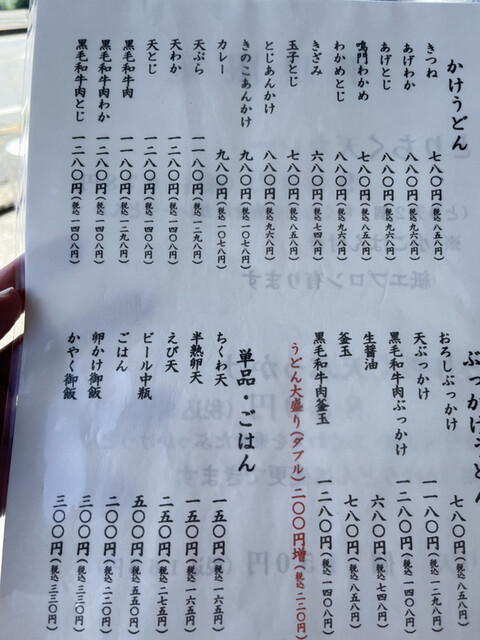 かけうどん
きつね 七八〇円(税込 八五八円)
あげわか 八八〇円(税込 九六八円)
あげとじ 八八〇円(税込 九六八円)
鳴門わかめ 七八〇円(税込 八五八円)
わかめとじ 八八〇円(税込 九六八円)
きざみ 六八〇円(税込 七四八円)
玉子とじ 七八〇円(税込 八五八円)
とじあんかけ 八八〇円(税込 九六八円)
きのこあんかけ 九八〇円(税込 一〇七八円)
カレー 九八〇円(税込 一〇七八円)
天ぷら 一一八〇円(税込 一二九八円)
天わか 一二八〇円(税込 一四〇八円)
天とじ 一二八〇円(税込 一四〇八円)
黒毛和牛肉 一一八〇円(税込 一二九八円)
黒毛和牛肉わか 一二八〇円(税込 一四〇八円)
黒毛和牛肉とじ 一二八〇円(税込 一四〇八円)
ぶっかけうどん
おろしぶっかけ 七八〇円(税込 八五八円)
天ぶっかけ 一一八〇円(税込 一二九八円)
黒毛和牛肉ぶっかけ 一二八〇円(税込 一四〇八円)
生醤油 六八〇円(税込 七四八円)
釜玉 七八〇円(税込 八五八円)
黒毛和牛肉釜玉 一二八〇円(税込 一四〇八円)
うどん大盛り(ダブル)二〇〇円増(税込 二二〇円)
単品・ごはん
ちくわ天 一五〇円(税込 一六五円)
半熟卵天 一五〇円(税込 一六五円)
えび天 二五〇円(税込 二七五円)
ビール中瓶 五〇〇円(税込 五五〇円)
ごはん 二〇〇円(税込 二二〇円)
卵かけ御飯 三〇〇円(税込 三三〇円)
かやく御飯 三〇〇円(税込 三三〇円)
紙エプロン有ります